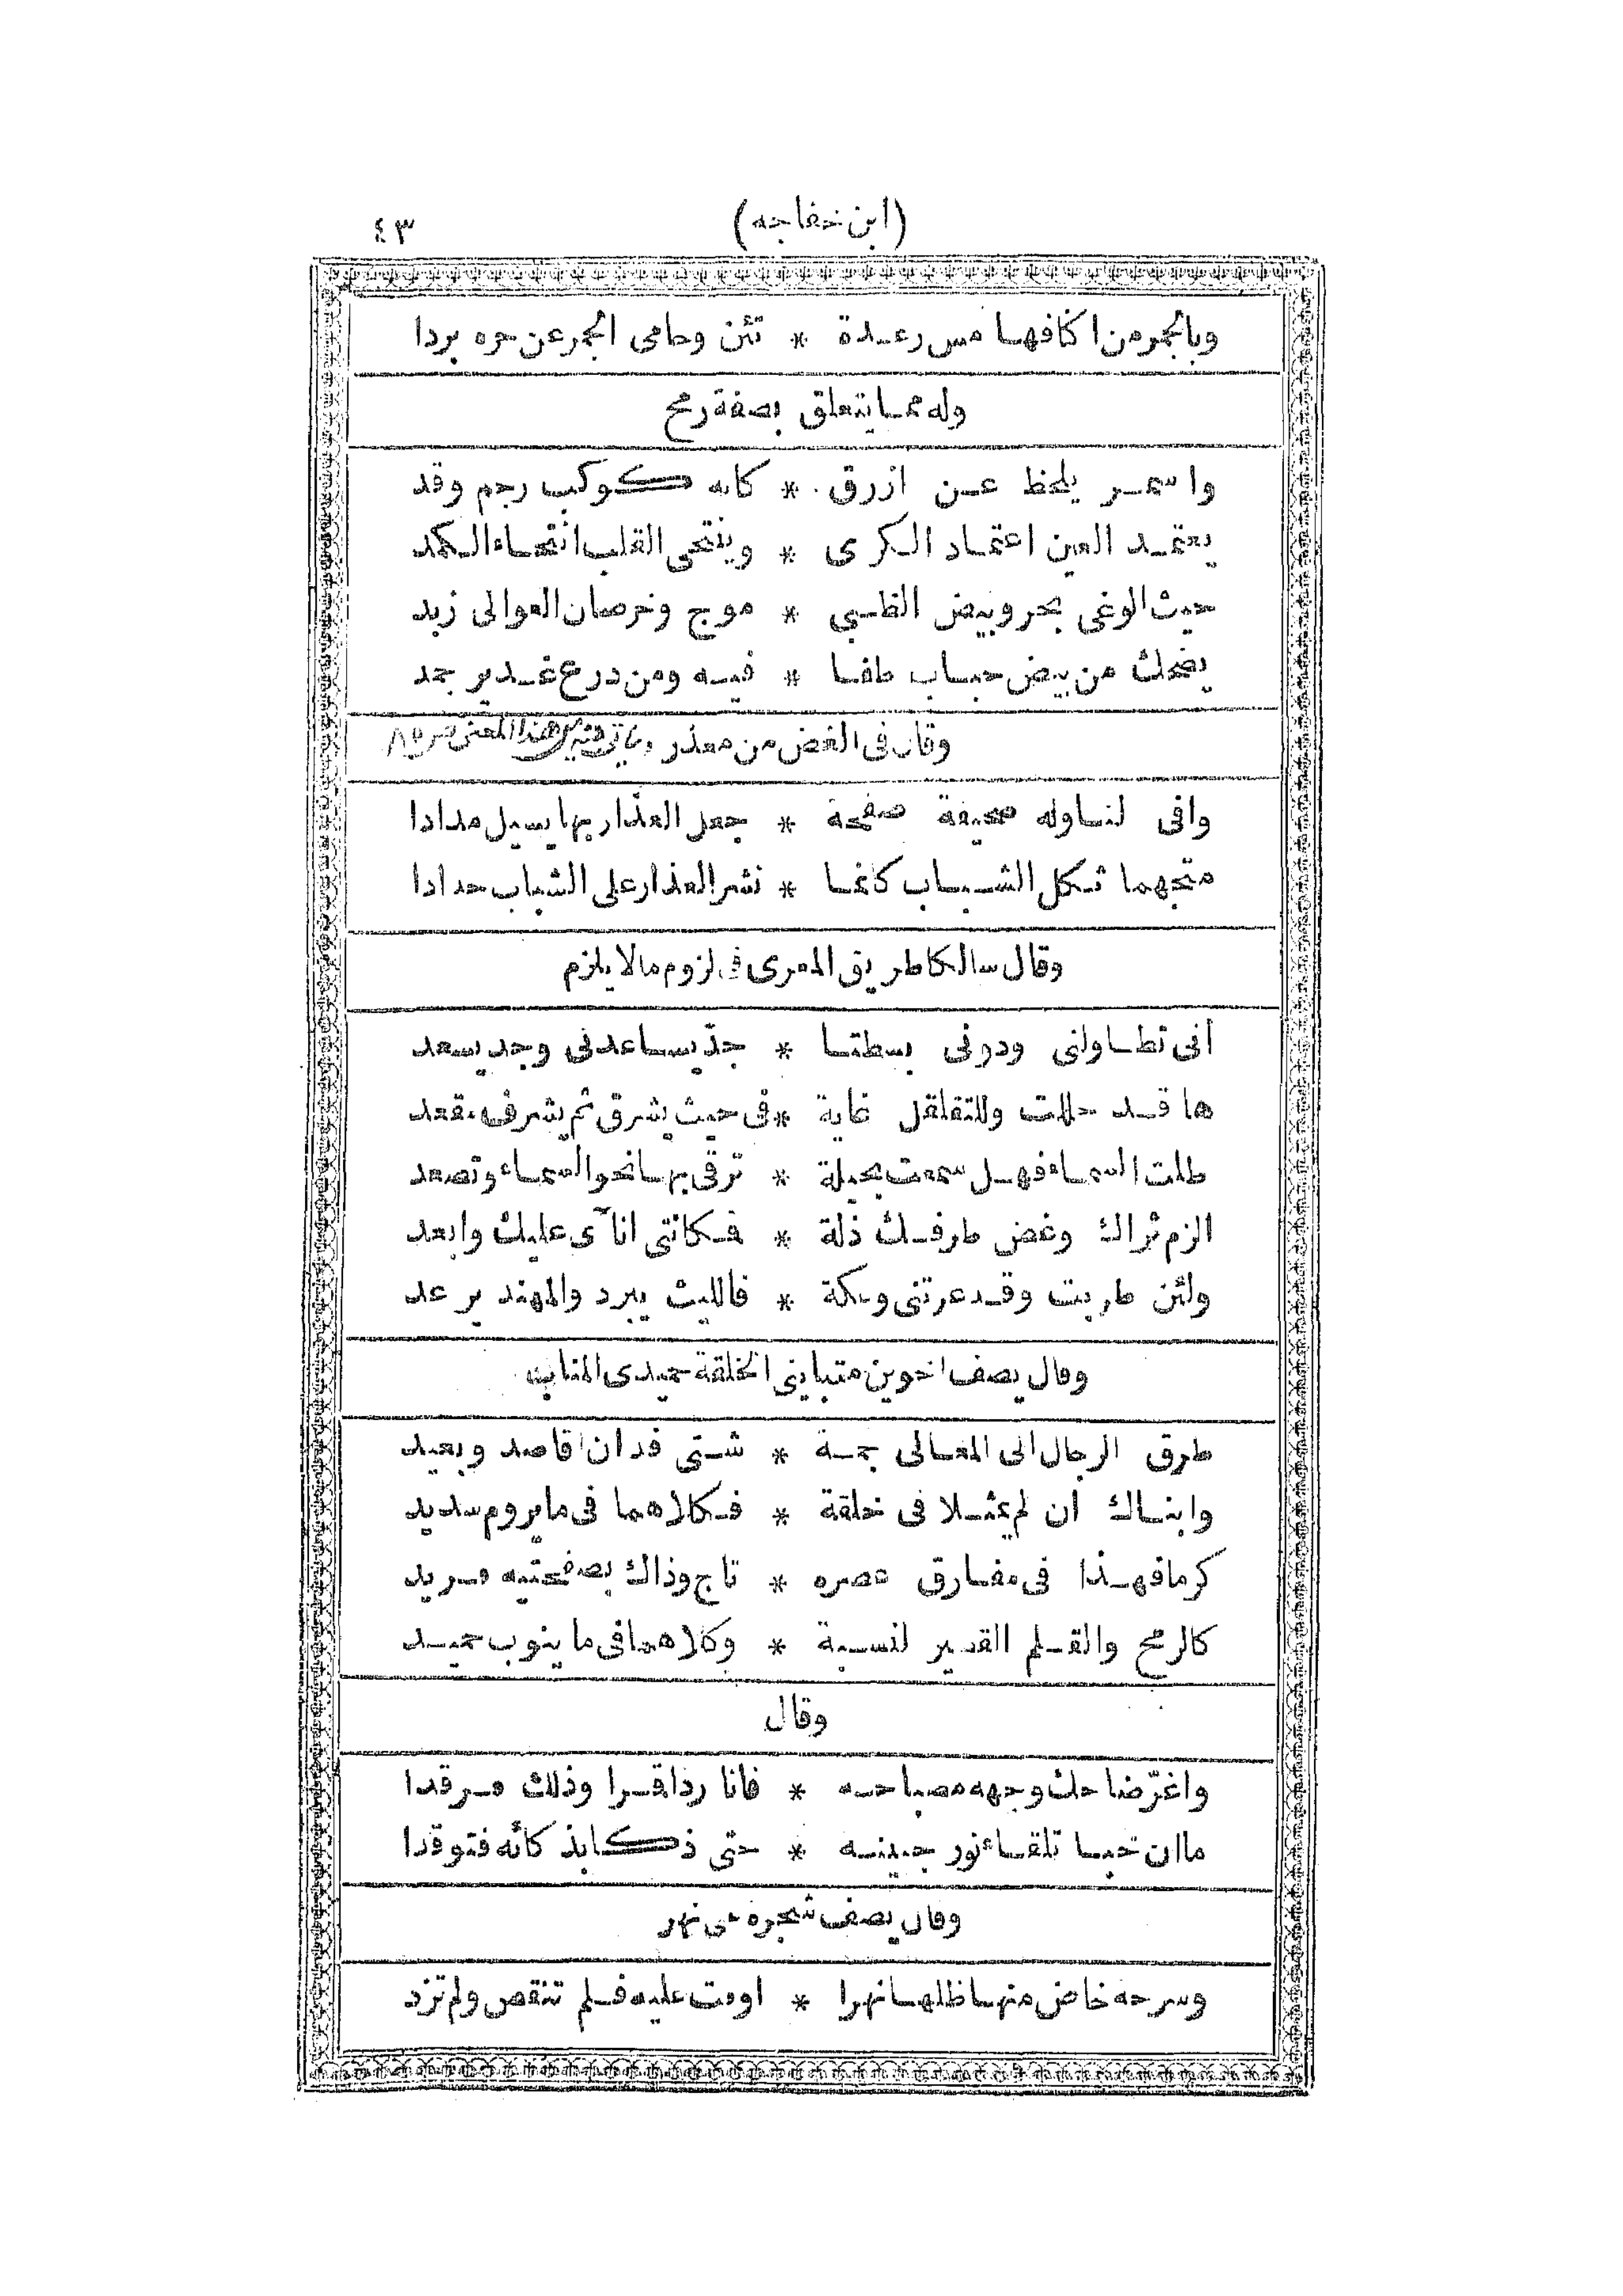 (ابن خفاجه)
٤٣
وبالجمر من اكنافها مس رعدة * تئن وحامى الجمر عن حره بردا
وله مما يتعلق بصفة رمح
واسمر يلحظ عن ازرق * كانه كوكب رجم وقد
يعتمد العين اعتماد الكرى * وينتحى القلب انتحاء الكمد
حيث الوغى بحر وبيض الظبى * موج وخرصان العوالى زبد
يضحك من بيض حباب طفا * فيه ومن درع غدير جمد
وقال فى الغض من معذر ويأتى هذا المعنى
وافى لنا وله صحيفة صفحة * جعل العذار بها يسيل مدادا
متجهما ثكل الشباب كانما * نشر العذار على الشباب حدادا
وقال سالكا طريق المعرى فى لزوم ما لا يلزم
أنى تطاولنى ودونى بسطتا * جدّ يساعدنى وجد يسعد
ها قد حللت وللتقلقل غاية * فى حيث يشرق ثم يشرف مقعد
طلت السماء فهل سمعت بحيلة * ترقى بها نحو السماء وتصعد
الزم ثراك وغض طرفك ذلة * فمكانتى انآى عليك وابعد
ولئن طربت وقد عرتنى وعكة * فالليث يبرد والمهند يرعد
وقال يصف اخوين متباينى الخلقة حميدى المنابه
طرق الرجال الى المعالى جمة * شتى فدان قاصد وبعيد
وابناك ان لم يمثلا فى خلقة * فكلاهما فى ما يروم سديد
كرما فهذا فى مفارق عصره * تاج وذاك بصفحتيه مريد
كالرمح والقلم القدير لنسبة * وكلاهما فى ما ينوب حميد
وقال
واغرّ ضاحك وجهه مصباحه * فانا رذا قمرا وذلك مرقدا
ما ان خبا تلقاء نور جبينه * حتى ذكا بذكائه فتوقدا
وقال يصف شجرة على نهر
وسرحه خاض منها ظلها نهرا * اوفت عليه فلم تنقص ولم تزد